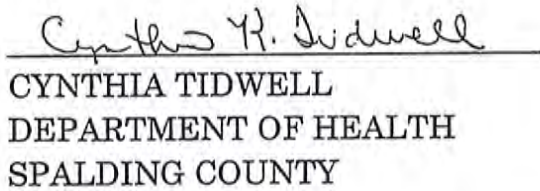 Cynthia K. Tidwell
CYNTHIA TIDWELL
DEPARTMENT OF HEALTH
SPALDING COUNTY